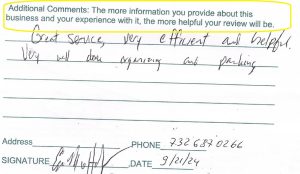 Additional Comments: The more information you provide about this
business and your experience with it, the more helpful your review will be.
Great service, very efficient and helpful.
Very well done organizing and packing
Address
PHONE 732 687 0266
SIGNATURE DATE 9/21/24